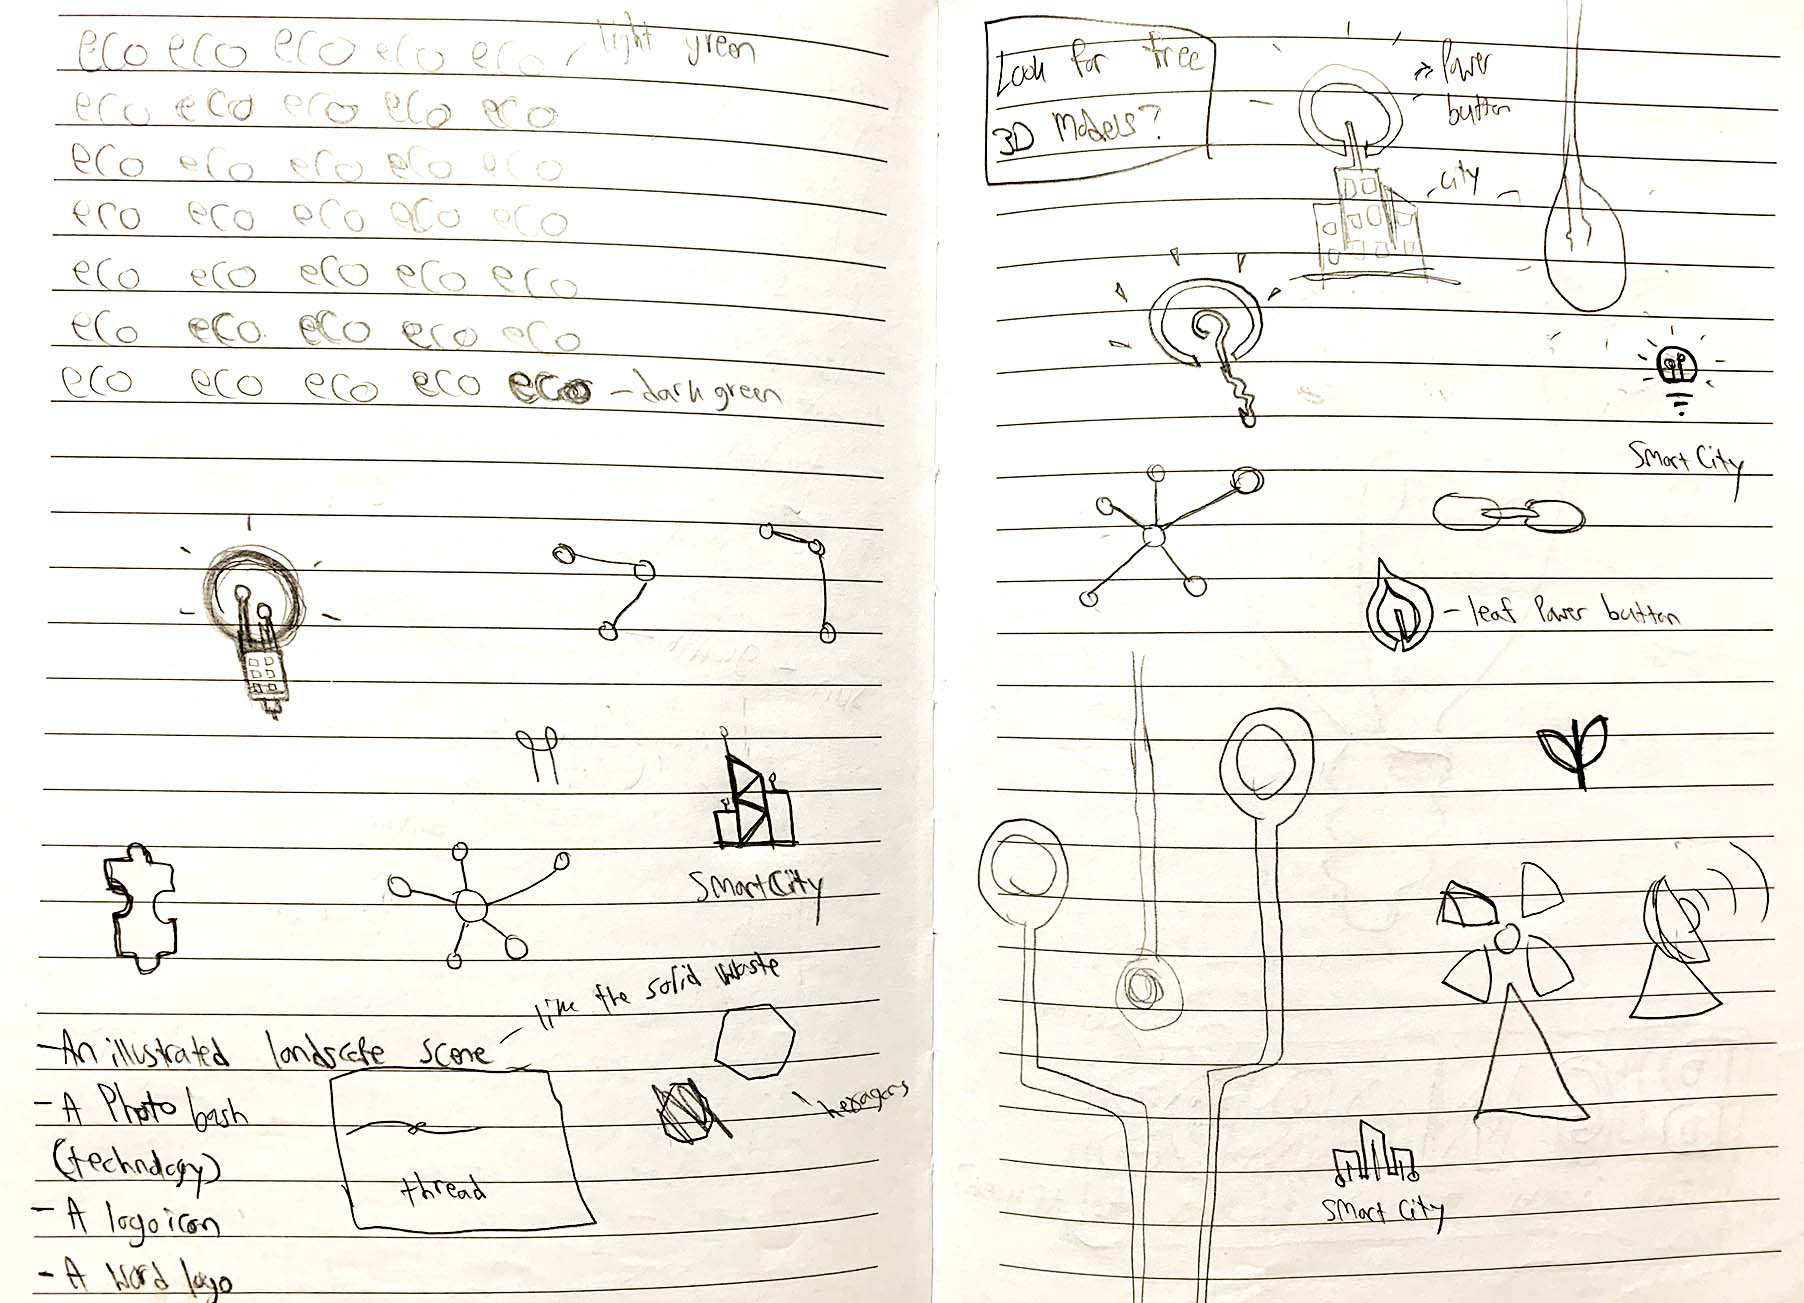 eco eco eco eco eco - light green
eco eco eco eco eco
eco eco eco eco eco
eco eco eco eco eco
eco eco eco eco eco
eco eco eco eco eco
eco eco eco eco eco - dark green
Smart City
like the solid waste
- An illustrated landscape scene
- A Photo bash
(technology)
- A logo icon
- A word logo
thread
hexagons
Look for free
3D Models?
Power
button
city
Smart City
- leaf Power button
Smart City